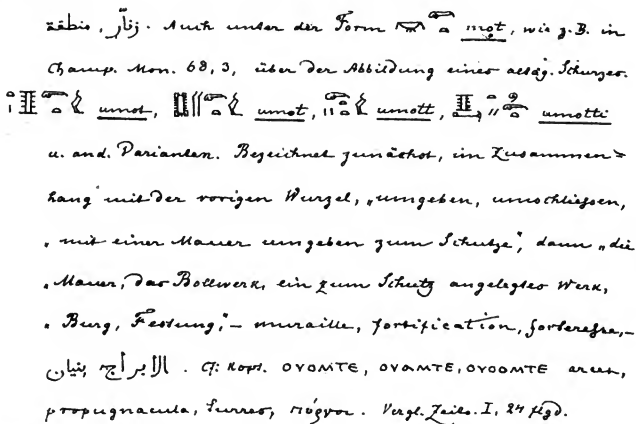 منطقة, زنّار. Auch unter der Form 𓅓 mot, wie z. B. in
Champ. Mon. 68, 3, über der Abbildung eines altäg. Schurzes.
umot, umot, umott, umotti
u. and. Varianten. Bezeichnet zunächst, im Zusammen=
hang mit der vorigen Wurzel, „umgeben, umschliessen,
„mit einer Mauer umgeben zum Schutze“, dann „die
„Mauer, das Bollwerk, ein zum Schutz angelegtes Werk,
„Burg, Festung“, – muraille, fortification, forteresse, –
الابراج, بنيان. Cf. Kopt. ⲟⲩⲟⲙⲧⲉ, ⲟⲩⲁⲙⲧⲉ, ⲟⲩⲟⲟⲙⲧⲉ arces,
propugnacula, turres, πύργοι. Vergl. Zeits. I, 24 flgd.